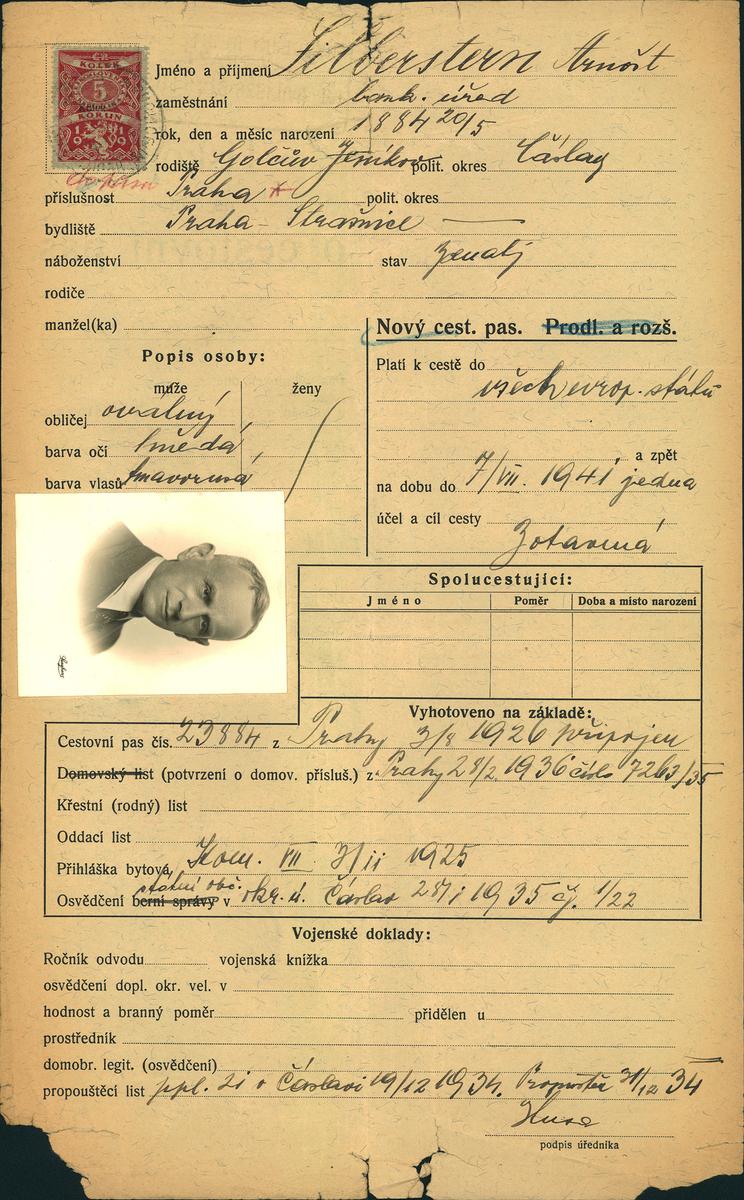 KOLEK
5
KORUN
1919
Jméno a příjmení Silberstern Arnošt
zaměstnání bank. úřed
rok, den a měsíc narození 1884 20/5
rodiště Golčův Jeníkov polit. okres Čáslav
příslušnost Praha polit. okres
bydliště Praha - Strašnice
náboženství stav ženatý
rodiče
manžel(ka)
Nový cest. pas. Prodl. a rozš.
Popis osoby:
muže ženy
obličej oválný
barva očí hnědá
barva vlasů tmavorusá
Platí k cestě do
všech evrop. států
a zpět
na dobu do 7/VII. 1941, jedna
účel a cíl cesty
Zotavená
Spolucestující:
Jméno Poměr Doba a místo narození
Vyhotoveno na základě:
Cestovní pas čís. 23884 z Prahy 3/8 1926 připojen
Domovský list (potvrzení o domov. přísluš.) z Prahy 28/2 1936 číslo 7263/35
Křestní (rodný) list
Oddací list
Přihláška bytová Kom. VII 3/11 1925
státní obč.
Osvědčení berní správy v okr. ú. Čáslav 28/1 1935 č. 1/22
Vojenské doklady:
Ročník odvodu vojenská knížka
osvědčení dopl. okr. vel. v
hodnost a branný poměr přidělen u
prostředník
domobr. legit. (osvědčení)
propouštěcí list ppl. 21 v Čáslavi 19/12 1934. Propuštěn 31/12 34
Husa
podpis úředníka